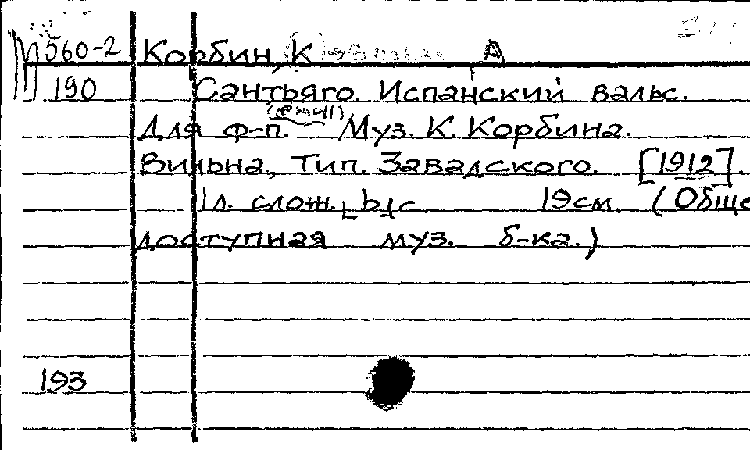 П560-2 Корбин, К А
190 Сантьяго. Испанский вальс.
Для ф-п. Муз. К. Корбина.
Вильна, Тип. Завадского. [1912].
1 л. слож. b. c 19 см. (Обще
доступная муз. б-ка.)
193